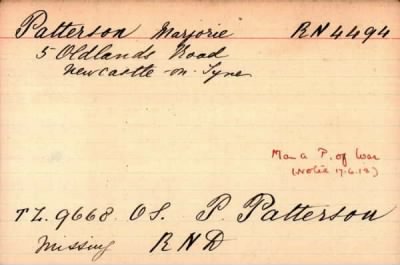 Patterson Marjorie RN 4494
5 Oldlands Road
Newcastle on Tyne
Man a P. of War
(Notice 17.6.18)
TZ. 9668. OS. P. Patterson
Missing RND